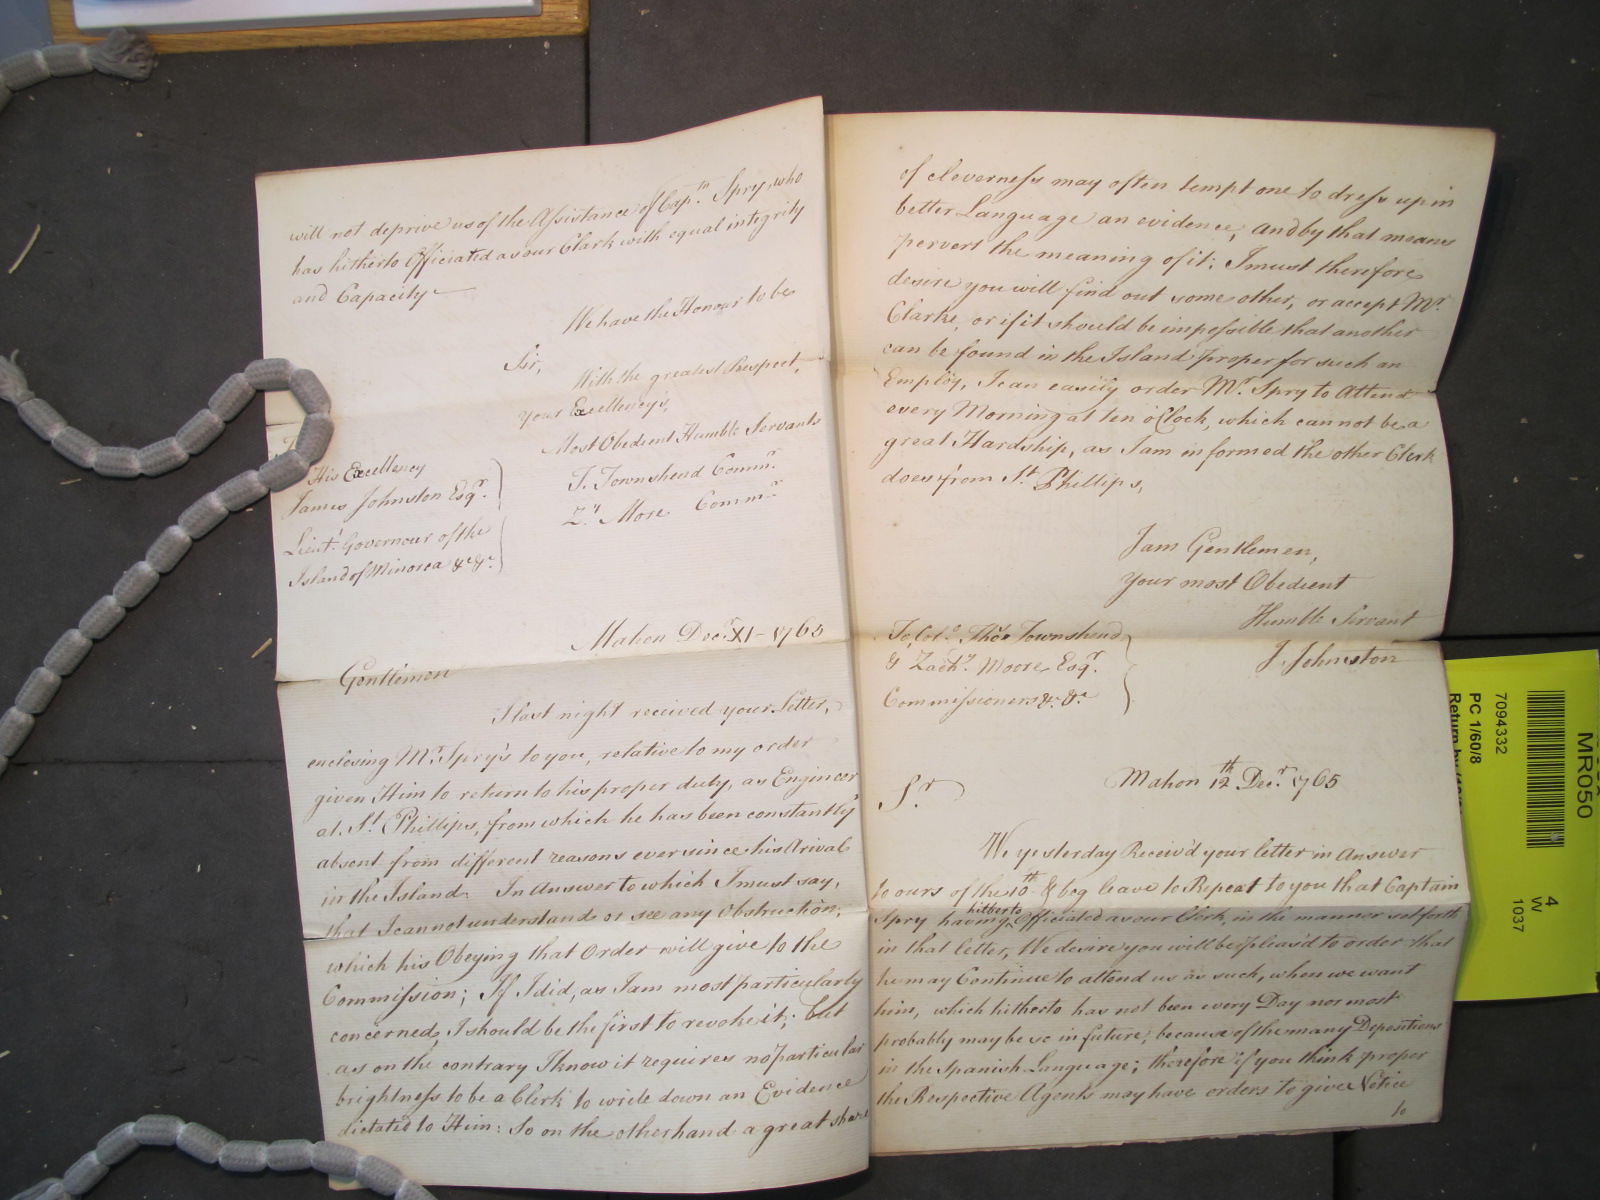 will not deprive us of the Assistance of Cap.tn Spry, who
has hitherto Officiated as our Clark with equal integrity
and Capacity
We have the Honour to be
Sir,
With the greatest Respect,
your Excellency's,
Most Obedient Humble Servants
T. Townshend Commr.
Z.y More Commr.
His Excellency
James Johnston Esqr.
Lieut. Governour of the
Island of Minorca &c &c.
Mahon Decr. XI - 1765
Gentlemen
I last night received your Letter,
enclosing Mr. Spry's to you, relative to my order
given Him to return to his proper duty, as Engineer
at St. Phillips, from which he has been constantly
absent from different reasons ever since his Arival
in the Island. In Answer to which I must say,
that I cannot understand or see any Obstruction,
which his Obeying that Order will give to the
Commission; If I did, as I am most particularly
concerned, I should be the first to revoke it; but
as on the contrary I know it requires no particular
brightness to be a Clerk to write down an Evidence
dictated to Him: So on the other hand a great share
of cleverness may often tempt one to dress up in
better Language an evidence, and by that means
pervert the meaning of it; I must therefore
desire you will find out some other, or accept Mr.
Clarke, or if it should be impossible that another
can be found in the Island proper for such an
Employ, I can easily order Mr. Spry to Attend
every Morning at ten o'Clock, which cannot be a
great Hardship, as I am informed the other Clerk
does from St. Phillips,
I am Gentlemen,
your most Obedient
Humble Servant
J. Johnston
To Col.o Thos. Townshend
& Zach.y Moore Esqr.
Commissioners &c. &c.
Mahon 12th Decr. 1765
Sr
We yesterday Receiv'd your letter in Answer
to ours of the 10th & beg leave to Repeat to you that Captain
Spry having hitherto Officiated as our Clerk, in the manner set forth
in that letter, We desire you will be pleas'd to order that
he may Continue to attend us as such, when we want
him, which hitherto has not been every Day nor most
probably may be so in future, because of the many Depositions
in the Spanish Language; therefore if you think proper
the Respective Agents may have orders to give Notice
to
MR050
7094332
PC 1/60/8
4
W
1037